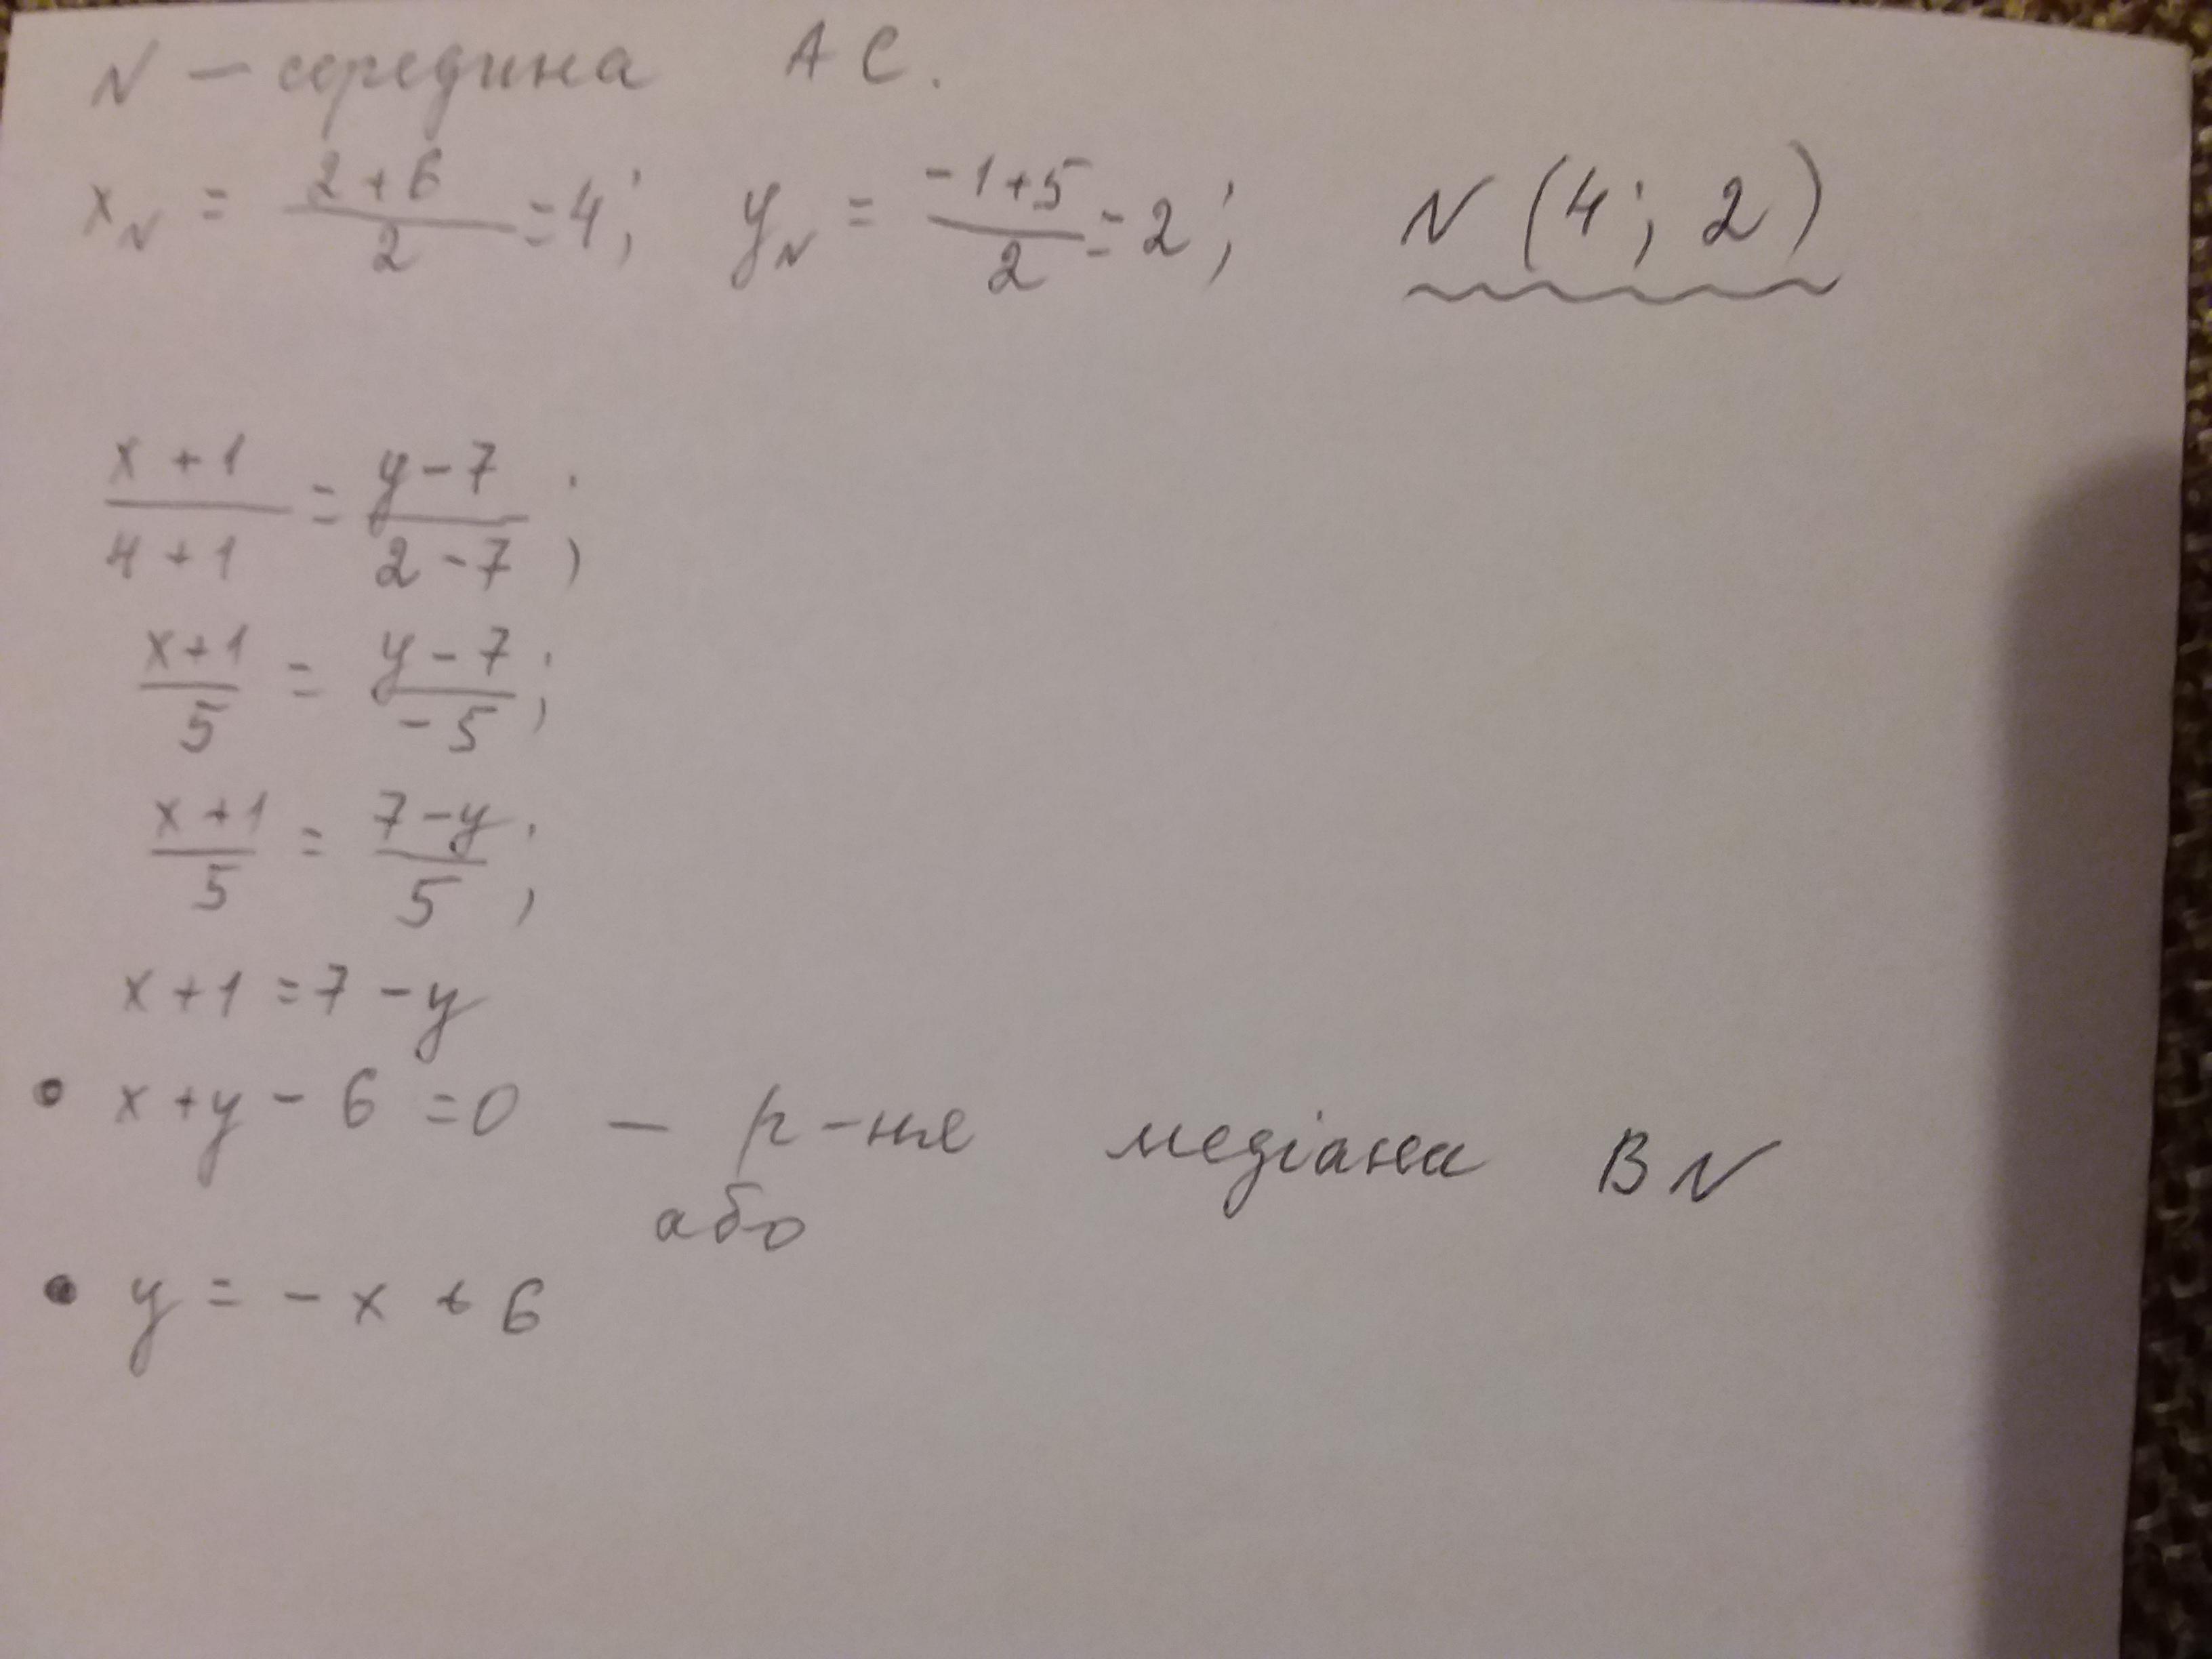 N – середина AC.
x_N = (2+6)/2 = 4; y_N = (-1+5)/2 = 2; N (4; 2)
(x+1)/(4+1) = (y-7)/(2-7);
(x+1)/5 = (y-7)/(-5);
(x+1)/5 = (7-y)/5;
x+1 = 7-y
• x+y-6=0 – р-ня медіана BN
або
• y = -x + 6